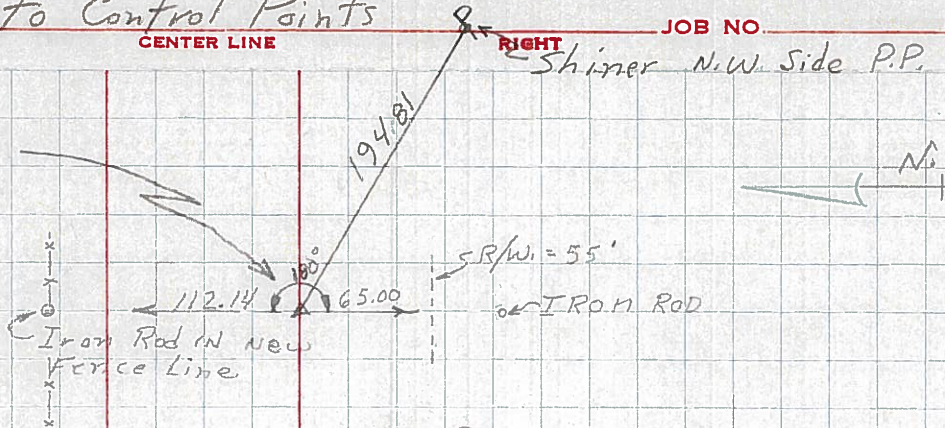 To Control Points
CENTER LINE
RIGHT
JOB NO.
Shiner N.W. Side P.P.
194.81
N.
180°
R/W. = 55'
112.14
65.00
IRon Rod
Iron Rod IN New
Fence Line